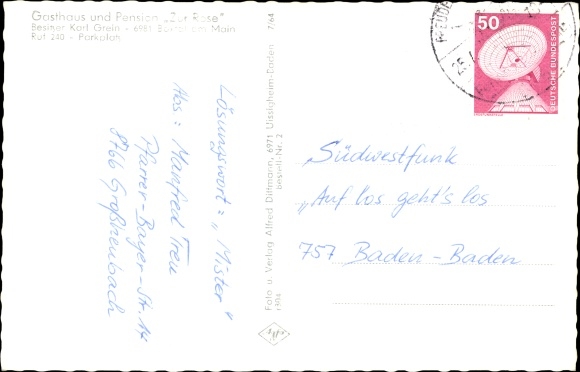 Gasthaus und Pension „Zur Rose"
Besitzer Karl Grein - 6981 am Main
Ruf 240 - Parkplatz
7/64
Lösungswort: „Mister"
Abs: Manfred Treu
Pfarrer-Bayer-Str. 14
8766 Großheubach
Foto u. Verlag Alfred Dittmann, 6971 Uissigheim-Baden
Bestell-Nr. 2
50
DEUTSCHE BUNDESPOST
Südwestfunk
„Auf los geht's los
757 Baden-Baden